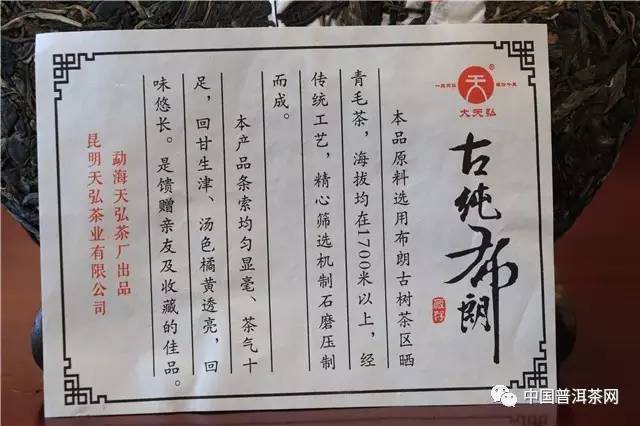 天
®
大天弘
古纯布朗
本品原料选用布朗古树茶区晒
青毛茶，海拔均在1700米以上，经
传统工艺，精心筛选机制石磨压制
而成。
本产品条索均匀显毫、茶气十
足，回甘生津、汤色橘黄透亮，回
味悠长。是馈赠亲友及收藏的佳品。
勐海天弘茶厂出品
昆明天弘茶业有限公司
中国普洱茶网